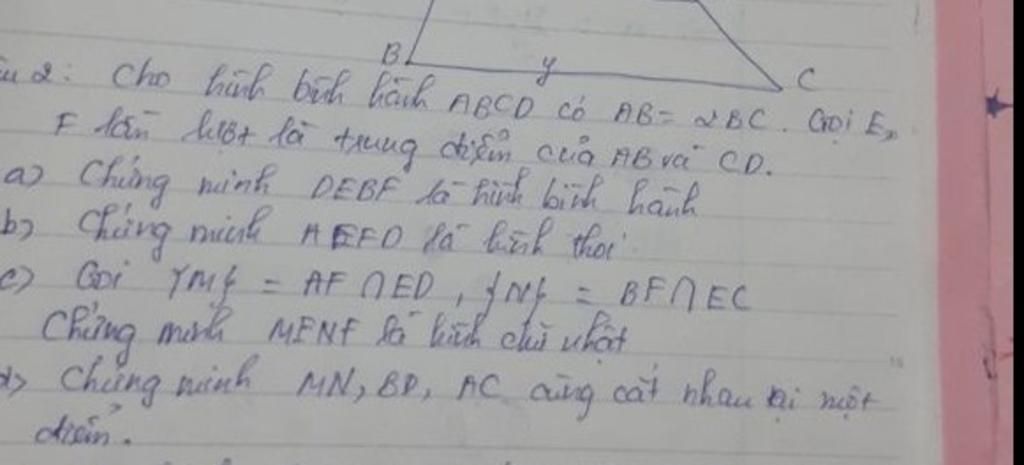 B
y
C
2: Cho hình bình hành ABCD có AB = 2BC. Gọi E,
F lần lượt là trung điểm của AB và CD.
a) Chứng minh DEBF là hình bình hành
b) Chứng minh AEFD là hình thoi
c) Gọi {M} = AF ∩ ED, {N} = BF ∩ EC
Chứng minh MENF là hình chữ nhật
d) Chứng minh MN, BD, AC cùng cắt nhau tại một
điểm.